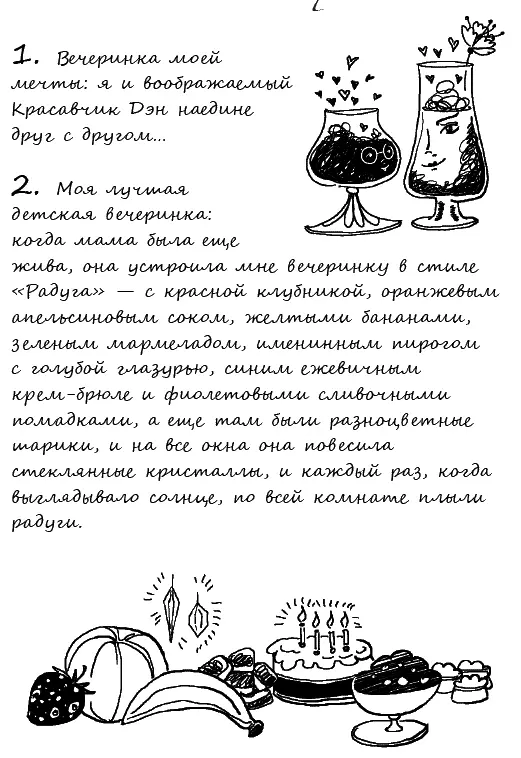 1. Вечеринка моей
мечты: я и воображаемый
Красавчик Дэн наедине
друг с другом...
2. Моя лучшая
детская вечеринка:
когда мама была еще
жива, она устроила мне вечеринку в стиле
«Радуга» — с красной клубникой, оранжевым
апельсиновым соком, желтыми бананами,
зеленым мармеладом, именинным пирогом
с голубой глазурью, синим ежевичным
крем-брюле и фиолетовыми сливочными
помадками, а еще там были разноцветные
шарики, и на все окна она повесила
стеклянные кристаллы, и каждый раз, когда
выглядывало солнце, по всей комнате плыли
радуги.